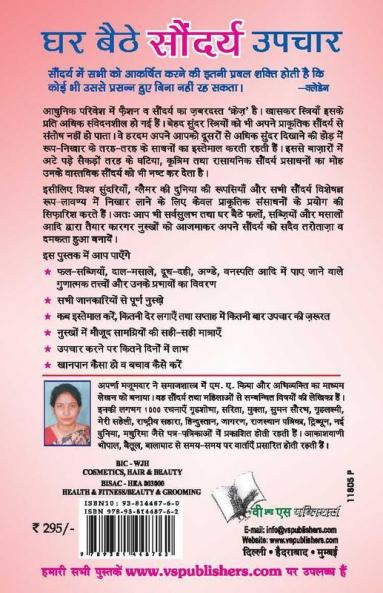 घर बैठे सौंदर्य उपचार
सौंदर्य में सभी को आकर्षित करने की इतनी प्रबल शक्ति होती है कि
कोई भी उससे प्रसन्न हुए बिना नहीं रह सकता।
—क्लेडेन
आधुनिक परिवेश में फैशन व सौंदर्य का ज़बरदस्त 'क्रेज़' है। खासकर स्त्रियाँ इसके
प्रति अधिक संवेदनशील हो गई हैं। बेहद सुंदर स्त्रियों को भी अपने प्राकृतिक सौंदर्य से
संतोष नहीं हो पाता। वे हरदम अपने आपको दूसरों से अधिक सुंदर दिखाने की होड़ में
रूप-निखार के तरह-तरह के साधनों का इस्तेमाल करती रहती हैं। इससे बाज़ारों में
अटे पड़े सैकड़ों तरह के घटिया, कृत्रिम तथा रासायनिक सौंदर्य प्रसाधनों का मोह
उनके वास्तविक सौंदर्य को भी नष्ट कर देता है।
इसीलिए विश्व सुंदरियाँ, ग्लैमर की दुनिया की रूपसियाँ और सभी सौंदर्य विशेषज्ञ
रूप-लावण्य में निखार लाने के लिए केवल प्राकृतिक संसाधनों के प्रयोग की
सिफ़ारिश करते हैं। अतः आप भी सर्वसुलभ तथा घर बैठे फलों, सब्ज़ियों और मसालों
आदि द्वारा तैयार कारगर नुस्खों को आजमाकर अपने सौंदर्य को सदैव तरोताज़ा व
दमकता हुआ बनायें।
इस पुस्तक में आप पाएँगे
★ फल-सब्जियों, दाल-मसाले, दूध-दही, अण्डे, वनस्पति आदि में पाए जाने वाले
गुणात्मक तत्त्वों और उनके प्रभावों का विवरण
★ सभी जानकारियों से पूर्ण नुस्ख़े
★ कब इस्तेमाल करें, कितनी देर लगाएँ तथा सप्ताह में कितनी बार उपचार की ज़रूरत
★ नुस्खों में मौजूद सामग्रियों की सही-सही मात्राएँ
★ उपचार करने पर कितने दिनों में लाभ
★ खानपान कैसा हो व बचाव कैसे करें
अपर्णा मजूमदार ने समाजशास्त्र में एम. ए. किया और अभिव्यक्ति का माध्यम
लेखन को बनाया। वह सौंदर्य तथा महिलाओं से सम्बन्धित विषयों की लेखिका हैं।
इनकी लगभग 1000 रचनाएँ गृहशोभा, सरिता, मुक्ता, सुमन सौरभ, गृहलक्ष्मी,
मेरी सहेली, राष्ट्रीय सहारा, हिन्दुस्तान, जागरण, राजस्थान पत्रिका, ट्रिब्यून, नई
दुनिया, मधुरिमा जैसे पत्र-पत्रिकाओं में प्रकाशित होती रहती हैं। आकाशवाणी
भोपाल, बैतूल, बालाघाट से समय-समय पर वार्ताएँ प्रसारित होती रहती हैं।
BIC - WJH
COSMETICS, HAIR & BEAUTY
BISAC - HEA 003000
HEALTH & FITNESS/BEAUTY & GROOMING
ISBN10: 93-814487-6-0
ISBN 978-93-814487-6-2
₹ 295/-
11805 P
वी एण्ड एस पब्लिशर्स
E-mail: info@vspublishers.com
Website: www.vspublishers.com
दिल्ली • हैदराबाद • मुम्बई
हमारी सभी पुस्तकें www.vspublishers.com पर उपलब्ध हैं